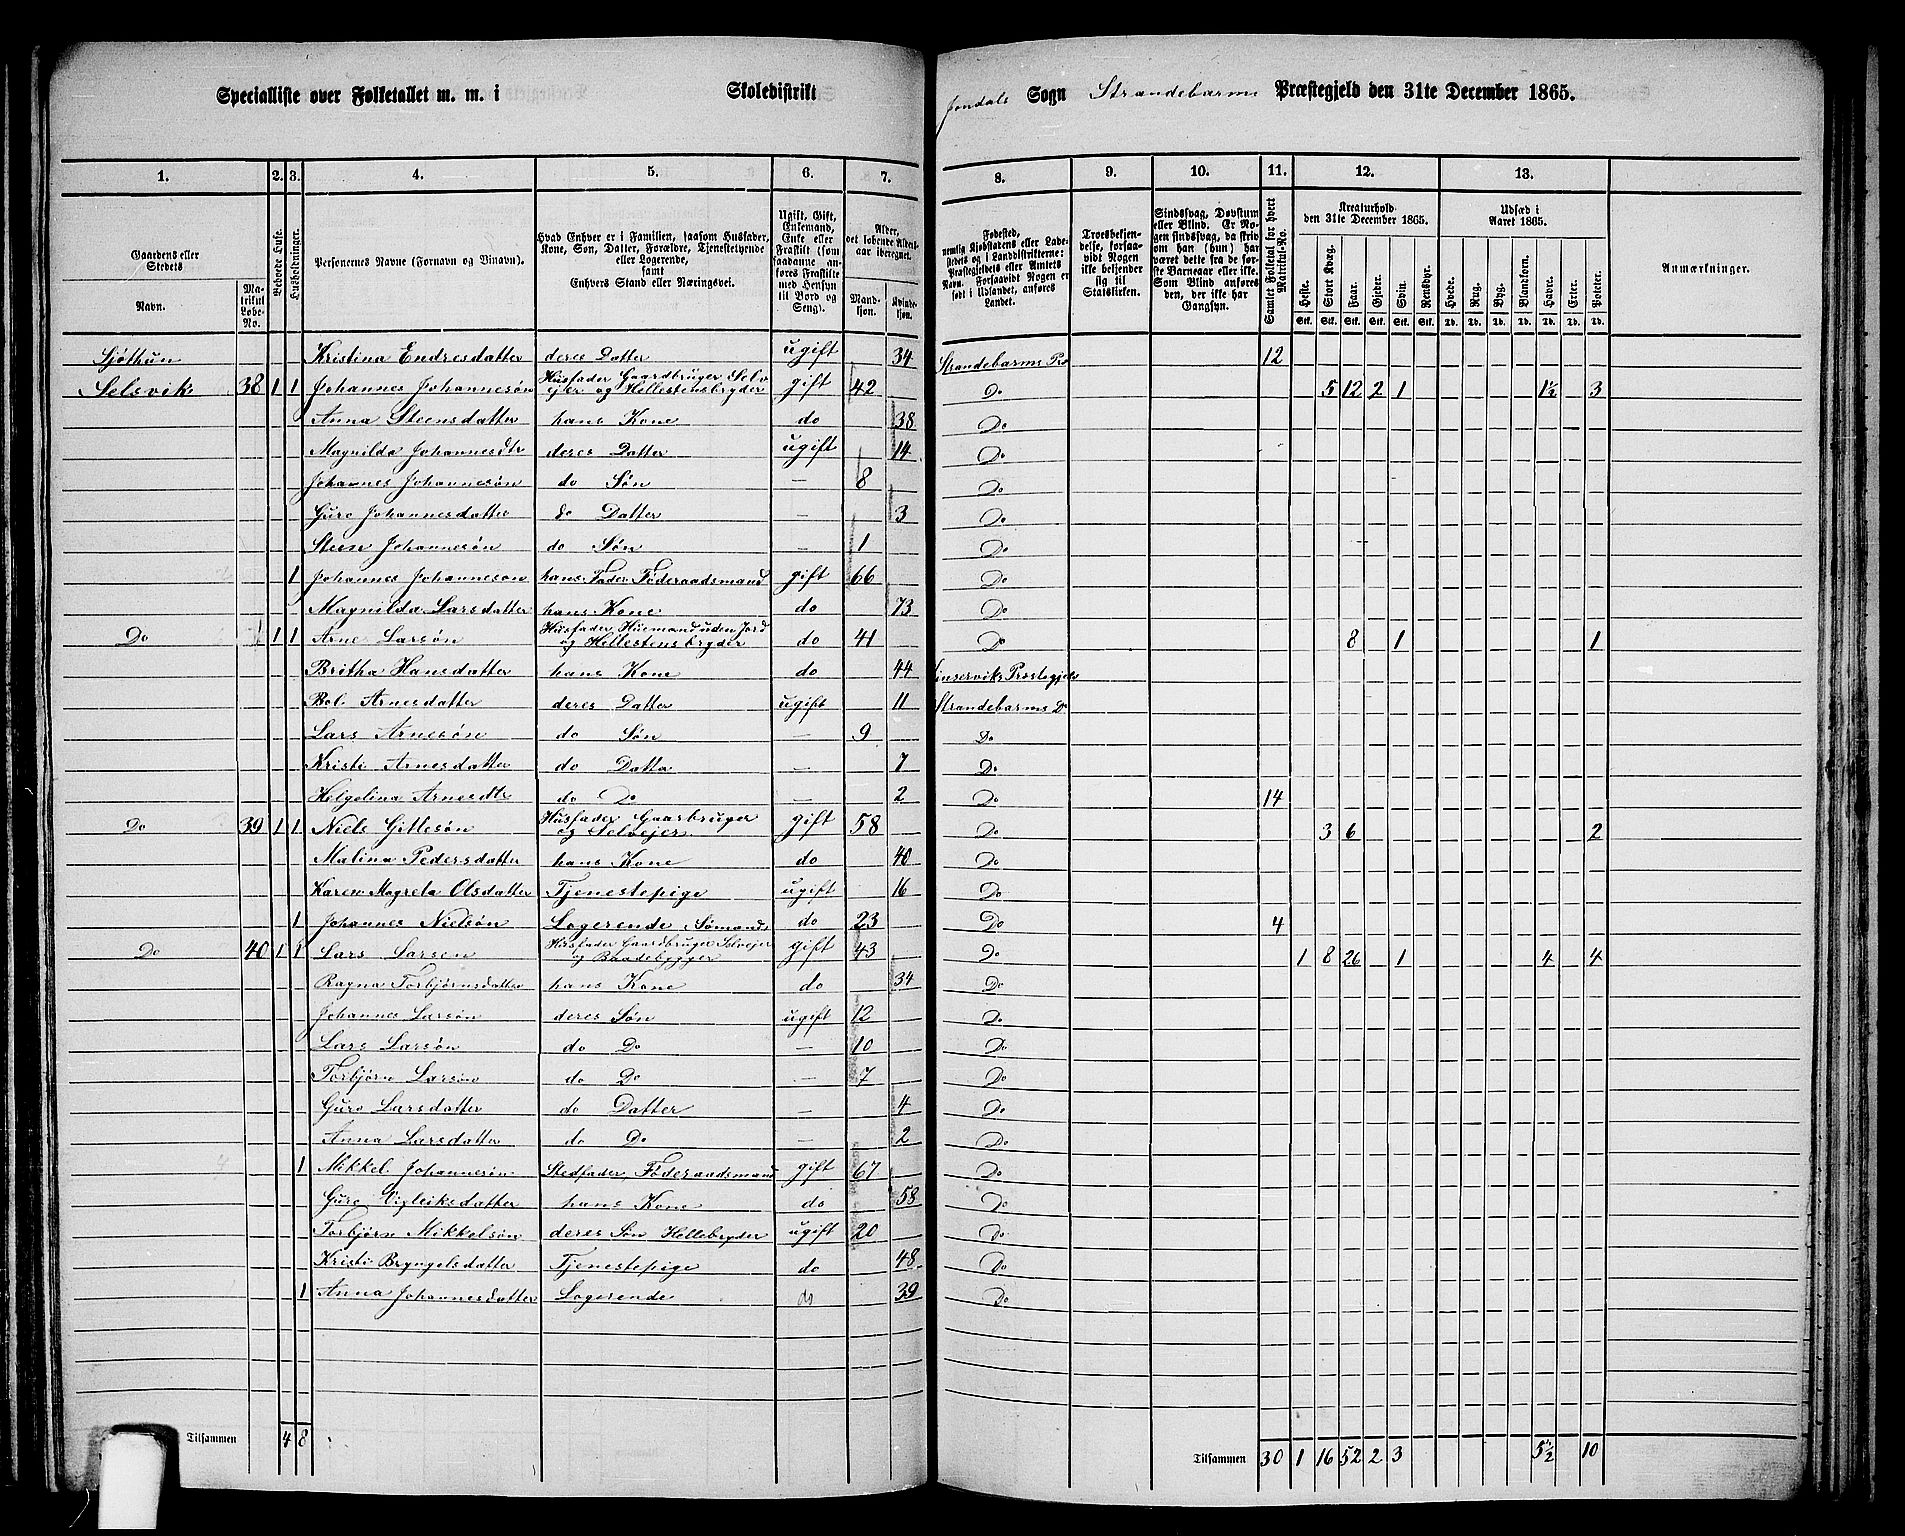 Specialliste over Folketallet m. m. i Skoledistrikt Jondals Sogn Strandebarms Præstegjeld den 31te December 1865.
1. 2. 3. 4. 5. 6. 7. 8. 9. 10. 11. 12. 13.
Gaardens eller Stedets
Navn.
Matrikul Løbe-No.
Beboede Huse.
Husholdninger.
Personernes Navne (Fornavn og Binavn).
Hvad Enhver er i Familien, saasom Husfader, Kone, Søn, Datter, Forældre, Tjenestetyende eller Logerende, samt Enhvers Stand eller Næringsvei.
Ugift, Gift, Enkemand, Enke eller Fraskilt (som saadanne anføres Fraskilte med Hensyn til Bord og Seng).
Alder, det løbende Aldersaar iberegnet.
Mandkjøn.
Kvindekjøn.
Fødested, nemlig Kjøbstadens eller Ladestedets og i Landdistrikterne: Præstegjeldets eller Amtets Navn. Forsaavidt Nogen er født i Udlandet, anføres Landet.
Troesbekjendelse, forsaavidt Nogen ikke bekjender sig til Statskirken.
Sindssvag, Døvstum eller Blind. Er Nogen sindssvag, da skriv om han (hun) har været dette fra de første Barneaar eller ikke. Som Blind anføres den, der ikke har Gangsyn.
Samlet Folketal for hvert Matrikul-No.
Kreaturhold den 31te December 1865.
Heste. Stort Kvæg. Faar. Gjeder. Svin. Rensdyr.
Stk. Stk. Stk. Stk. Stk. Stk.
Udsæd i Aaret 1865.
Hvede. Rug. Byg. Blandkorn. Havre. Erter. Poteter.
Td. Td. Td. Td. Td. Td. Td.
Anmærkninger.
Sjøthun Kristina Endresdatter deres Datter ugift 34 Strandebarms Pr 12
Selsvik 38 1 1 Johannes Johannesøn Husfader Gaardbruger Selvejer og Hellestensbryder gift 42 Do 5 12 2 1 1½ 3
Anna Steensdatter hans Kone do 38 Do
Magnilda Johannesdtr deres Datter ugift 14 Do
Johannes Johannesøn do Søn — 8 Do
Guro Johannesdatter do Datter — 3 Do
Steen Johannesøn do Søn — 1 Do
1 Johannes Johanneson hans Fader Føderaadsmand gift 66 Do
Magnilda Larsdatter hans Kone do 73 Do
Do 1 1 Arne Larsøn Husfader Husmand uden Jord og Hellestensbryder do 41 Do 8 1 1
Britha Hansdatter hans Kone do 44 Kinserviks Præstegjeld
Bol Arnesdatter deres Datter ugift 11 Strandebarms Do
Lars Arnesøn do Søn — 9 Do
Kristi Arnesdatter do Datte — 7 Do
Helgelina Arnesdtr do Do — 2 Do 14
Do 39 1 1 Niels Gittesøn Husfader Gaarbruger og Selvejer gift 58 Do 3 6 2
Malina Pedersdatter hans Kone do 40 Do
Karen Magreta Olsdatter Tjenestepige ugift 16 Do
1 Johannes Nielsøn Logerende Sømand do 23 Do 4
Do 40 1 1 Lars Larsen Husfader Gaardbruger Selvejer og Baadebygger gift 43 Do 1 8 26 1 4 4
Ragna Torbjørnsdatter hans Kone do 34 Do
Johannes Larsøn deres Søn ugift 12 Do
Lars Larsøn do Do — 10 Do
Torbjørn Larsøn do Do — 7 Do
Guro Larsdatter do Datter — 4 Do
Anna Larsdatter do Do — 2 Do
1 Mikkel Johannesøn Stedfader, Føderaadsmand gift 67 Do
Guro Vigleiksdatter hans Kone do 58 Do
Torbjørn Mikkelsøn deres Søn Hellebryder ugift 20 Do
Kristi Bryngelsdatter Tjenestepige do 48 Do
1 Anna Johannesdatter Logerende do 39 Do
Tilsammen 4 8 Tilsammen 30 1 16 52 2 3 5½ 10